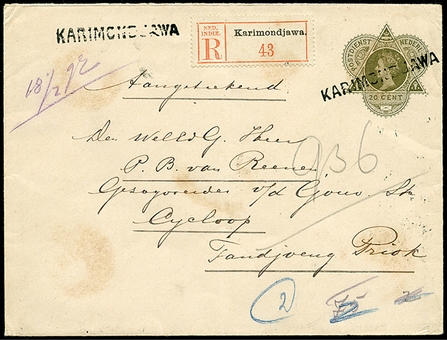 KARIMONDJAWA
NED. INDIË.
R
Karimondjawa.
43
POSTDIENST NEDERL.
20 CENT
KARIMONDJAWA
18/2 92
Aangetekend
Den WelEdG. Heer
P. B. van Reenen
Gezagvoerder v/d Gouv St
Cycloop
Tandjoeng Priok
936
2